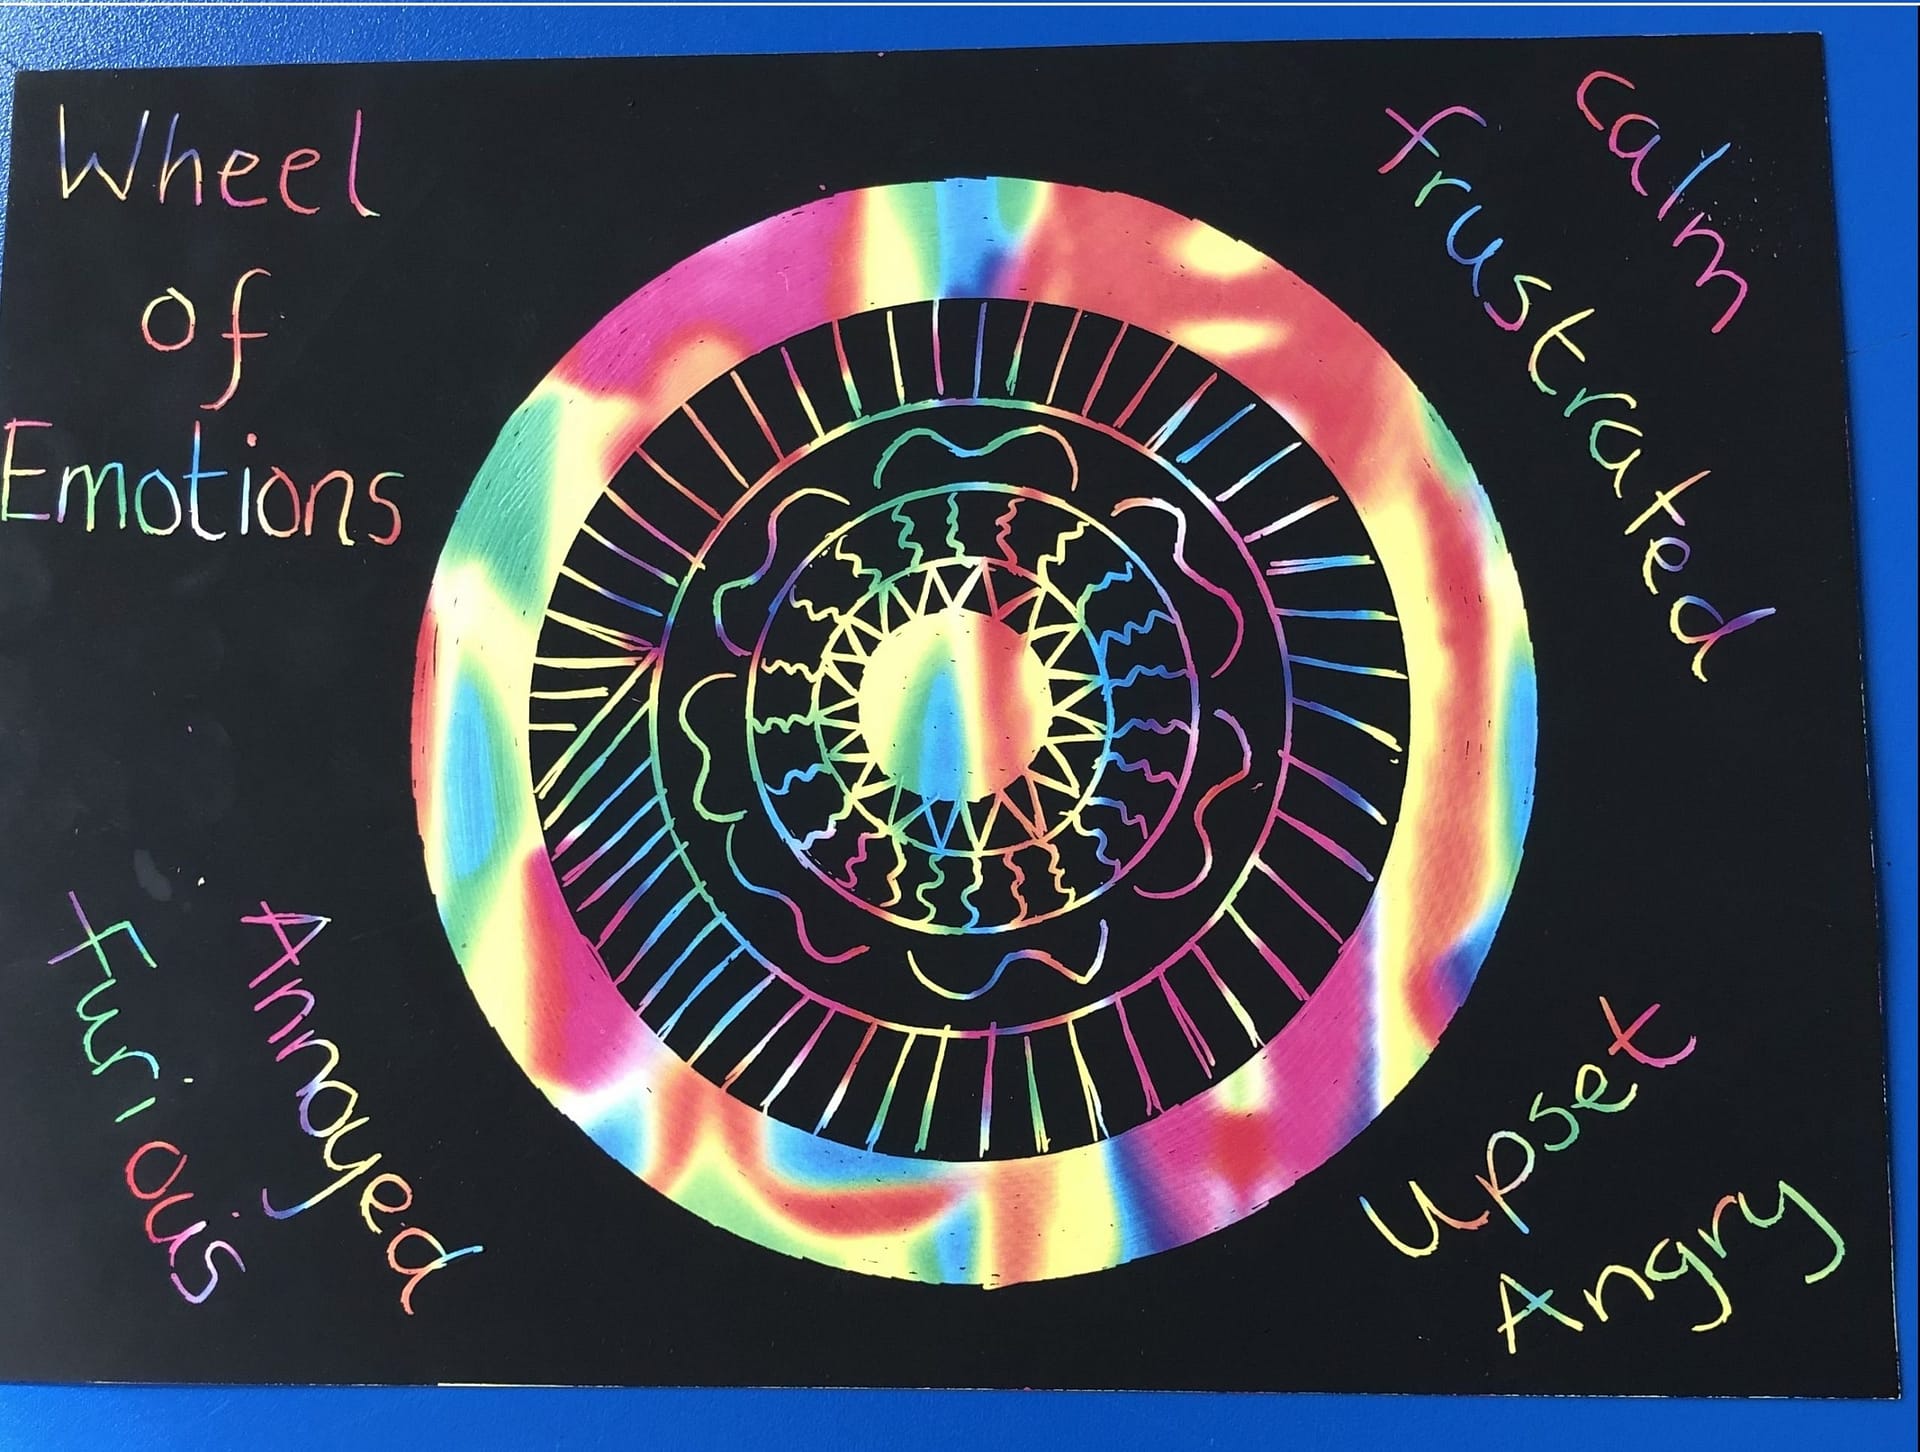 Wheel
of
Emotions
calm
frustrated
Annoyed
Furious
Upset
Angry